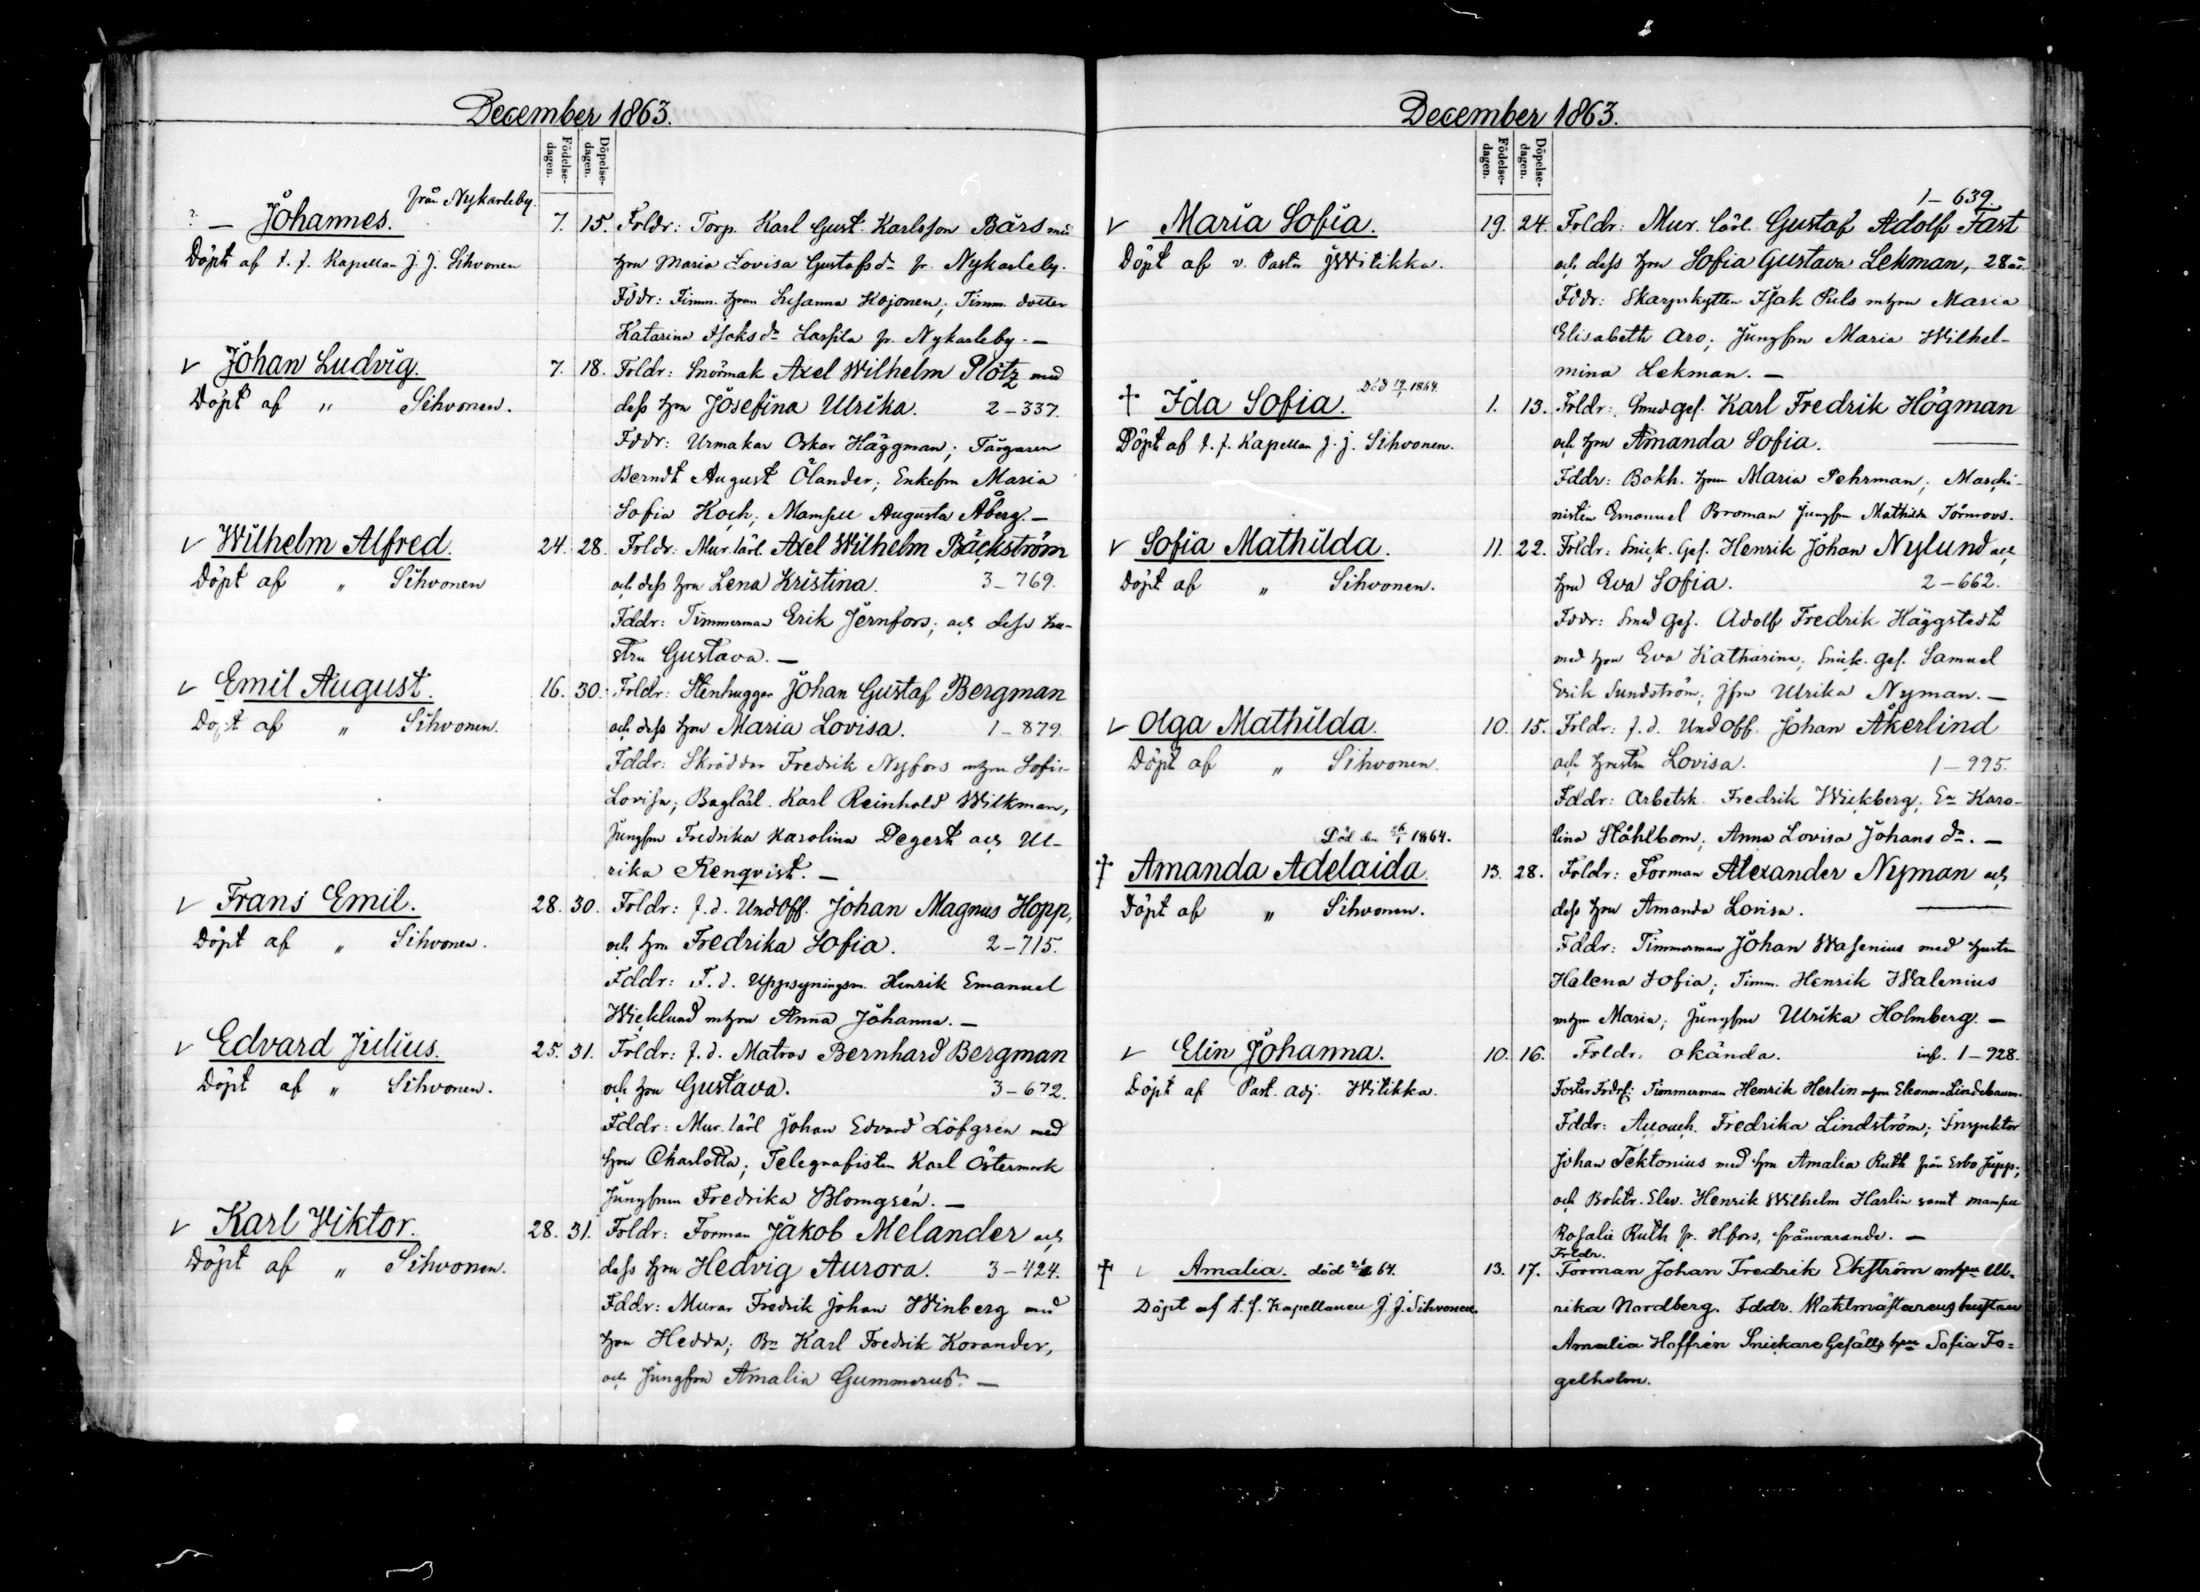 December 1863.
Födelse-dagen.
Döpelse-dagen.
från Nykarleby.
? — Johannes. 7. 15. Frldr: Torp. Karl Gust. Karlsson Bärs med
Döpt af t. f. Kapellan J. J. Sihvonen hru Maria Lovisa Gustafsdr fr. Nykarleby.
Fddr: Timm. hrun Susanna Kojonen; Timm. dotter
Katarina Isaksdr Lassila fr. Nykarleby. —
√ Johan Ludvig. 7. 18. Frldr: Snörmak Axel Wilhelm Plötz med
Döpt af " Sihvonen. dess hru Josefina Ulrika. 2-337.
Fddr: Urmakar Oskar Häggman; Färgaren
Berndt August Ölander; Enkefru Maria
Sofia Koch; Mamsell Augusta Åberg. —
√ Wilhelm Alfred. 24. 28. Frldr: Mur. lärl. Axel Wilhelm Bäckström
Döpt af " Sihvonen och dess hru Lena Kristina. 3-769.
Fddr: Timmerman Erik Jernfors; och dess hu-
stru Gustava. —
√ Emil August. 16. 30. Frldr: Stenhuggar Johan Gustaf Bergman
Döpt af " Sihvonen. och dess hru Maria Lovisa. 1-879
Fddr: Skräddar Fredrik Nyfors mhru Sofia
Lovisa; Baglärl. Karl Reinhold Wilkman,
Jungfru Fredrika Karolina Degert och Ul-
rika Renqvist. —
√ Frans Emil. 28. 30. Frldr: f. d. UndOff. Johan Magnus Hopp,
Döpt af " Sihvonen. och hru Fredrika Sofia. 2-715.
Fddr: F. d. Uppsyningsm. Henrik Emanuel
Wicklund mhru Anna Johanna. —
√ Edvard Julius. 25. 31. Frldr: f. d. Matros Bernhard Bergman
Döpt af " Sihvonen. och hru Gustava. 3-672.
Fddr: Mur. lärl Johan Edvard Löfgren med
hru Charlotta; Telegrafisten Karl Östermark
Jungfrun Fredrika Blomgrén. —
√ Karl Viktor. 28. 31. Frldr: Forman Jakob Melander och
Döpt af " Sihvonen. dess hru Hedvig Aurora. 3-424.
Fddr: Murar Fredrik Johan Winberg med
hru Hedda; Bn Karl Fredrik Korander,
och Jungfru Amalia Gummerus. —
December 1863.
Födelse-dagen.
Döpelse-dagen.
1-639.
√ Maria Sofia. 19. 24. Frldr: Mur. lärl. Gustaf Adolf Fast
Döpt af v. Pastn J Witikka. och dess hru Sofia Gustava Lekman, 28 år
Fddr: Skarpskytten Isak Puls mhru Maria
Elisabeth Aro; Jungfru Maria Wilhel-
mina Lekman. —
Död 19/1 1864.
† Ida Sofia. 1. 13. Frldr: Smed ges. Karl Fredrik Högman
Döpt af t. f. Kapellan J. J. Sihvonen. och hru Amanda Sofia. —
Fddr: Bokh. hru Maria Pehrman; Maschi-
nisten Emanuel Broman Jungfru Mathilda Törnroos.
√ Sofia Mathilda. 11. 22. Frldr: Snick. Ges. Henrik Johan Nylund och
Döpt af " Sihvonen. hru Eva Sofia. 2-662.
Fddr: Smed Ges. Adolf Fredrik Häggstedt
med hru Eva Katharina; Snick. Ges. Samuel
Erik Sundström; Jfru Ulrika Nyman. —
√ Olga Mathilda. 10. 15. Frldr: f. d. UndOff. Johan Åkerlind
Döpt af " Sihvonen. och hustru Lovisa. 1-995.
Fddr: Arbetsk. Fredrik Wickberg; En Karo-
lina Ståhlbom; Anna Lovisa Johansdr. —
Död den 26/1 1864.
† Amanda Adelaida. 13. 28. Frldr: Forman Alexander Nyman och
Döpt af " Sihvonen. dess hru Amanda Lovisa. —
Fddr: Timmerman Johan Wasenius med hustru
Halena Sofia; Timm. Henrik Walenius
mhru Maria; Jungfru Ulrika Holmberg. —
√ Elin Johanna. 10. 16. Frldr: okända. inf. 1-928.
Döpt af Past. Adj. Witikka. Foster Frdrf: Timmerman Henrik Herlin mhru Eleonora Lindebaum.
Fddr: Fredrika Lindström; Inspektor
Johan Tektonius med hru Amalia Ruth från Esbo
och Boktr. Elev. Henrik Wilhelm Harlin samt mamsell
Rosalie Ruth fr. Hfors, frånvarande. —
Frldr.
† √ Amalia. död 64. 13. 17. Forman Johan Fredrik Ekström mhru Ul-
Döpt af t. f. Kapellanen J. J. Sihvonen. rika Nordberg. Fddr. Waktmästarens hustru
Amalia Hoffrén Snickare Gesälls hru Sofia Fo-
gelholm.